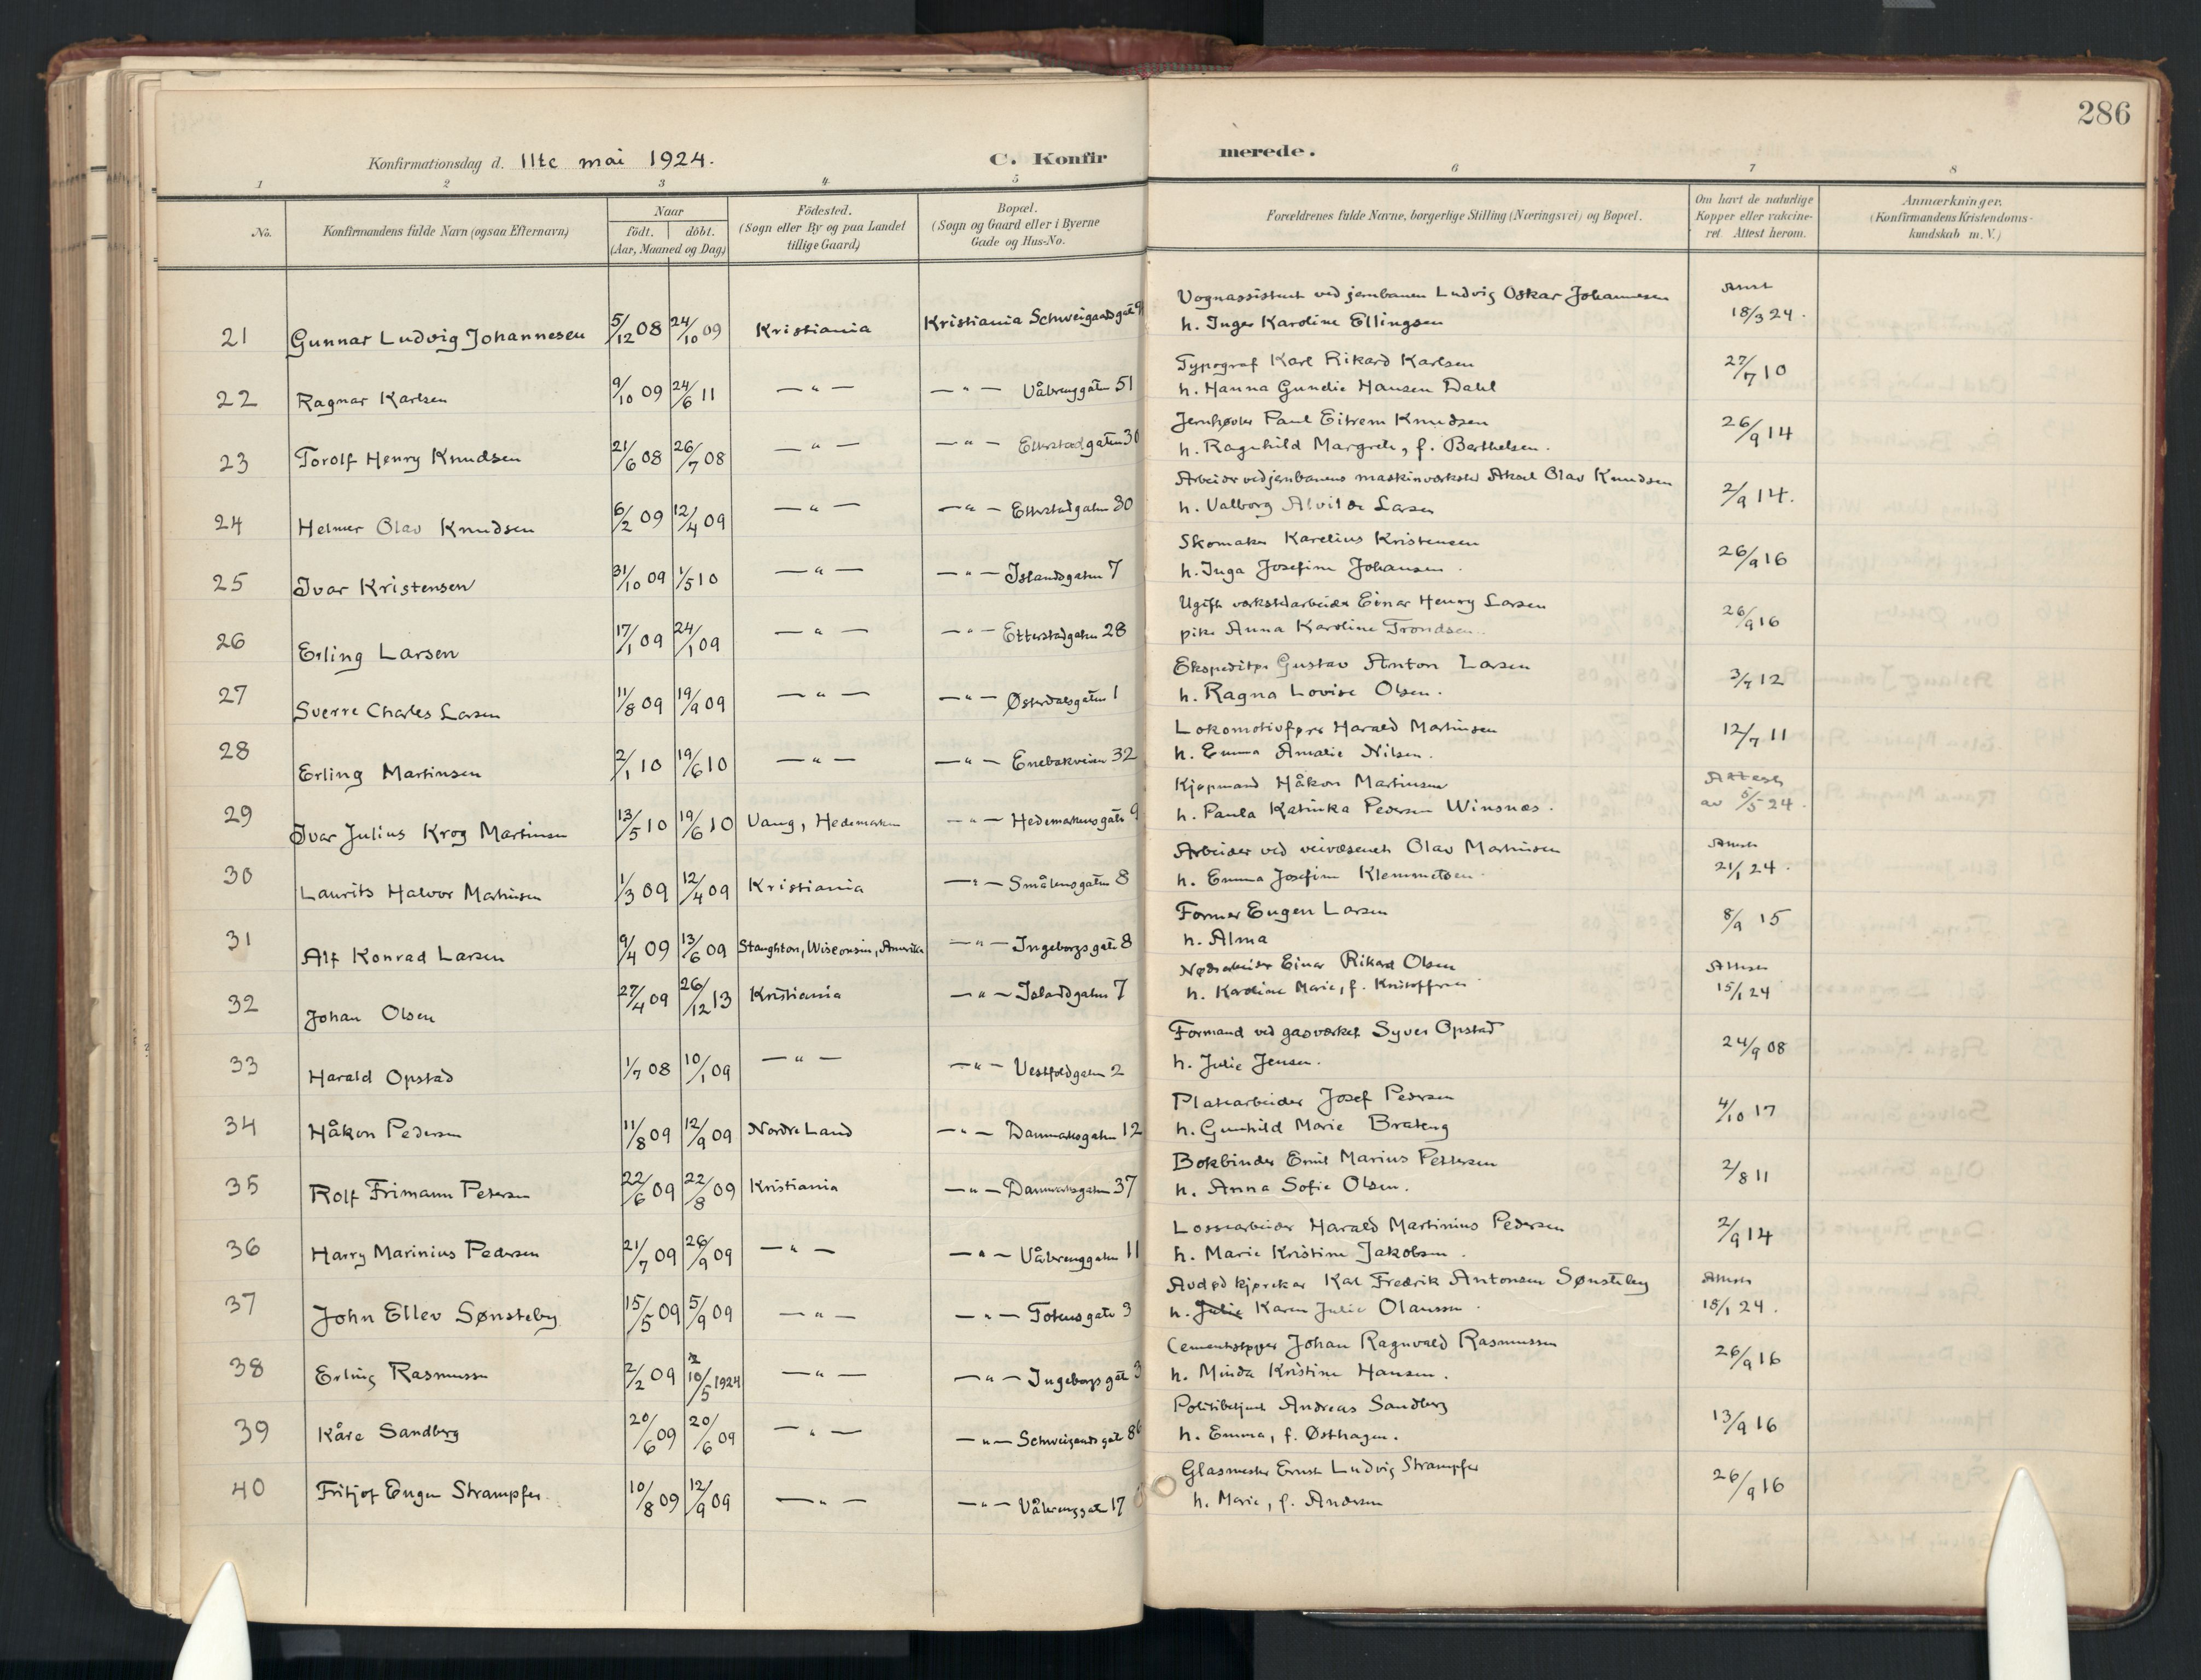 286
Konfirmationsdag d. 11te mai 1924.
C. Konfirmerede.
1 2 3 4 5 6 7 8
No.
Konfirmandens fulde Navn (ogsaa Efternavn)
Naar
födt. | döbt.
(Aar, Maaned og Dag)
Födested.
(Sogn eller By og paa Landet
tillige Gaard)
Bopæl.
(Sogn og Gaard eller i Byerne
Gade og Hus-No.
Forældrenes fulde Navne, borgerlige Stilling (Næringsvei) og Bopæl.
Om havt de naturlige
Kopper eller vakcine-
ret. Attest herom.
Anmærkninger.
(Konfirmandens Kristendoms-
kundskab m. V.)
21 Gunnar Ludvig Johannesen 5/12 08 24/10 09 Kristiania Kristiania Schweigaardsgat 9 Vognassistent ved jernbanen Ludvig Oskar Johannesen Attest
h. Inger Karoline Ellingsen 18/3 24.
22 Ragnar Karlsen 9/10 09 24/6 11 — " — — " — Vålerenggaten 51 Typograf Karl Rikard Karlsen 27/7 10
h. Hanna Gundie Hansen Dahl
23 Torolf Henry Knudsen 21/6 08 26/7 08 — " — — " — Etterstadgaten 30 Jernhøvler Paul Eitrem Knudsen 26/9 14
h. Ragnhild Margrete, f. Berthelsen.
24 Helmer Olav Knudsen 6/2 09 12/4 09 — " — — " — Etterstadgaten 30 Arbeider ved jernbanens maskinverksted Aksel Olav Knudsen 2/9 14.
h. Valborg Alvilde Larsen
25 Ivar Kristensen 31/10 09 1/5 10 — " — — " — Islandsgaten 7 Skomaker Karelius Kristensen 26/9 16
h. Inga Josefine Johansen.
26 Erling Larsen 17/1 09 24/1 09 — " — — " — Etterstadgaten 28 Ugift verkstedarbeider Einar Henry Larsen 26/9 16
pike Anna Karoline Trondsen.
27 Sverre Charles Larsen 11/8 09 19/9 09 — " — — " — Østerdalsgaten 1 Ekspeditør Gustav Anton Larsen 3/7 12
h. Ragna Lovise Olsen.
28 Erling Martinsen 2/1 10 19/6 10 — " — — " — Enebakveien 32 Lokomotivfører Harald Martinsen 12/7 11
h. Emma Amalie Nilsen.
29 Ivar Julius Krog Martinsen 13/5 10 19/6 10 Vang, Hedemarken — " — Hedemarkensgate 9 Kjøpmand Håkon Martinsen Attest
h. Paula Katinka Pedersen Winsnæs. av 5/5 24.
30 Laurits Halvor Martinsen 1/3 09 12/4 09 Kristiania — " — Smålensgaten 8 Arbeider ved veivæsenet Olav Martinsen Attest
h. Emma Josefine Klemmetsen. 21/1 24.
31 Alf Konrad Larsen 9/4 09 13/6 09 Stoughton, Wisconsin, Amerika — " — Ingeborgs gate 8 Former Eugen Larsen 8/9 15
h. Alma
32 Johan Olsen 27/4 09 26/12 13 Kristiania — " — Islandgaten 7 Nødsarbeider Einar Rikard Olsen Attest
h. Karoline Marie, f. Kristoffersen 15/1 24
33 Harald Opstad 1/7 08 10/1 09 — " — — " — Vestfoldgaten 2 Formand ved gasverket Syver Opstad 24/9 08
h. Julie Jensen.
34 Håkon Pedersen 11/8 09 12/9 09 Nordre Land — " — Danmarksgaten 12 Platearbeider Josef Pedersen 4/10 17
h. Gunhild Marie Brateng
35 Rolf Frimann Petersen 22/6 09 22/8 09 Kristiania — " — Danmarksgaten 37 Bokbinder Emil Marius Pettersen 2/8 11
h. Anna Sofie Olsen.
36 Harry Marinius Pedersen 21/7 09 26/9 09 — " — — " — Vålerenggaten 11 Lossearbeider Harald Martinius Pedersen 2/9 14
h. Marie Kristine Jakobsen.
37 John Ellev Sønsteby 15/5 09 5/9 09 — " — — " — Totensgate 3 Avdød kjørekar Karl Fredrik Antonsen Sønsteby Attest
h. Julie Karen Julie Olaussen. 15/1 24.
38 Erling Rasmussen 2/2 09 10/5 1924 — " — — " — Ingeborgs gate 3 Cementstøper Johan Ragnvald Rasmussen 26/9 16
h. Minda Kristine Hansen.
39 Kåre Sandberg 20/6 09 20/6 09 — " — — " — Schweigaards gat 86 Politibetjent Andreas Sandberg 13/9 16
h. Emma, f. Østhagen.
40 Fritjof Eugen Strampfer. 10/8 09 12/9 09 — " — — " — Vålerenggat 17 Glasmester Ernst Ludvig Strampfer 26/9 16
h. Marie, f. Andersen